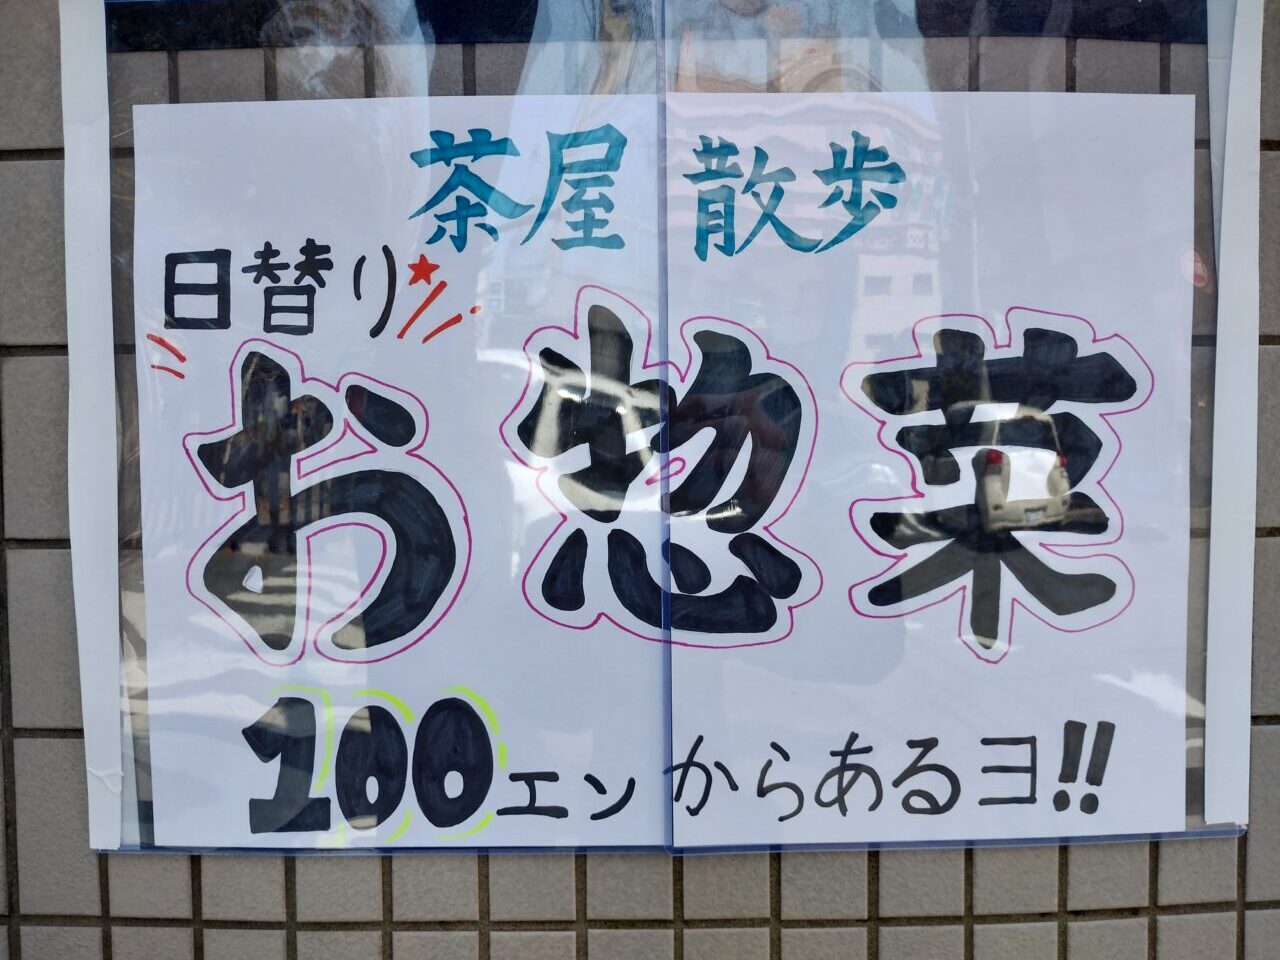 茶屋 散歩
日替り
お惣菜
100エンからあるヨ!!